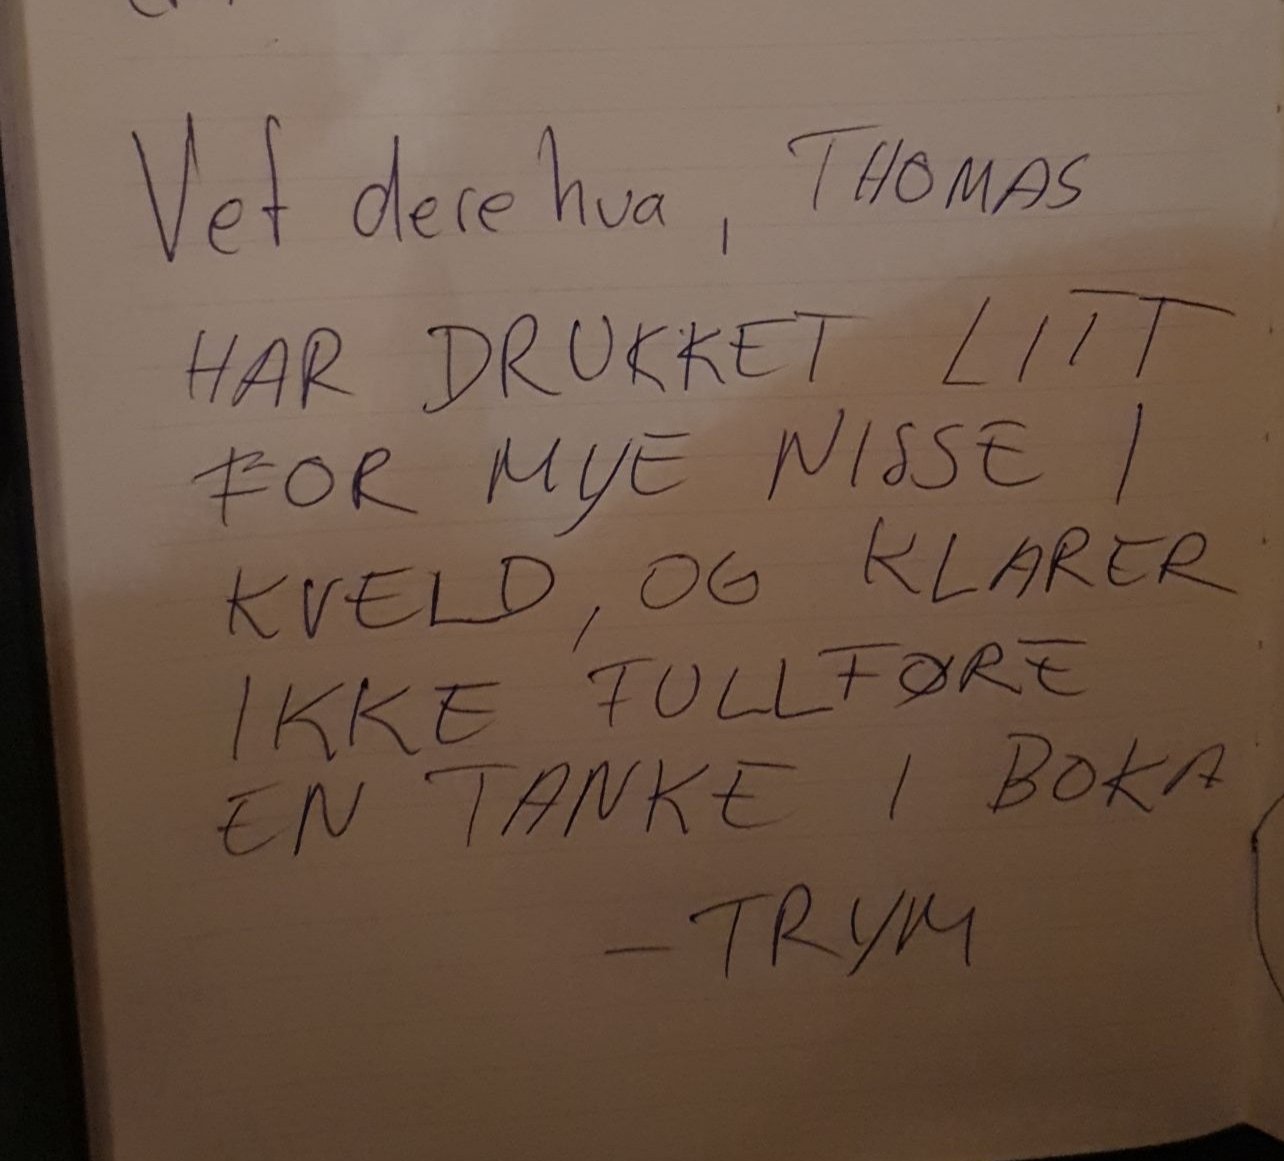 Vet dere hva, THOMAS
HAR DRUKKET LITT
FOR MYE NISSE I
KVELD, OG KLARER
IKKE FULLFØRE
EN TANKE I BOKA
- TRYM